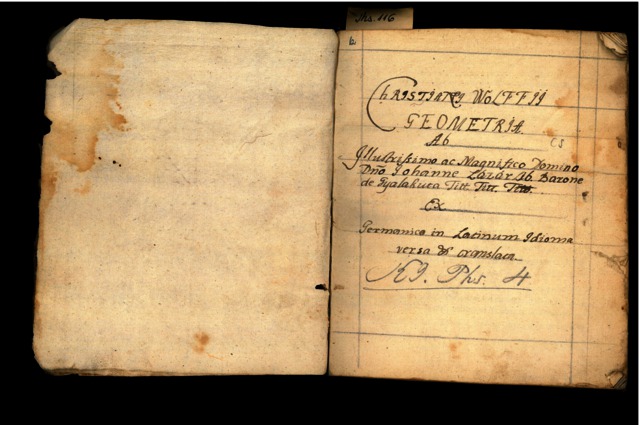 Phs. 116
6.
ChRISTIANI WOLFFII
GEOMETRIA
Ab
Illustrissimo ac Magnifico Domino
Dno Johanne Lázár Ab Barone
de Gyalakuta Titt. Titt. Titt.
Ex
Germanico in Latinum Idioma
versa & translata
KJ. Phs. 4